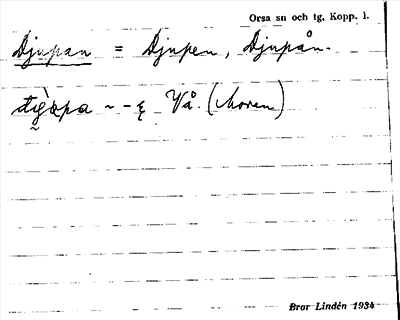 Orsa sn och tg, Kopp. l.
Djupan = Djupen, Djupån.
Vå (Moren)
Bror Lindén 1934